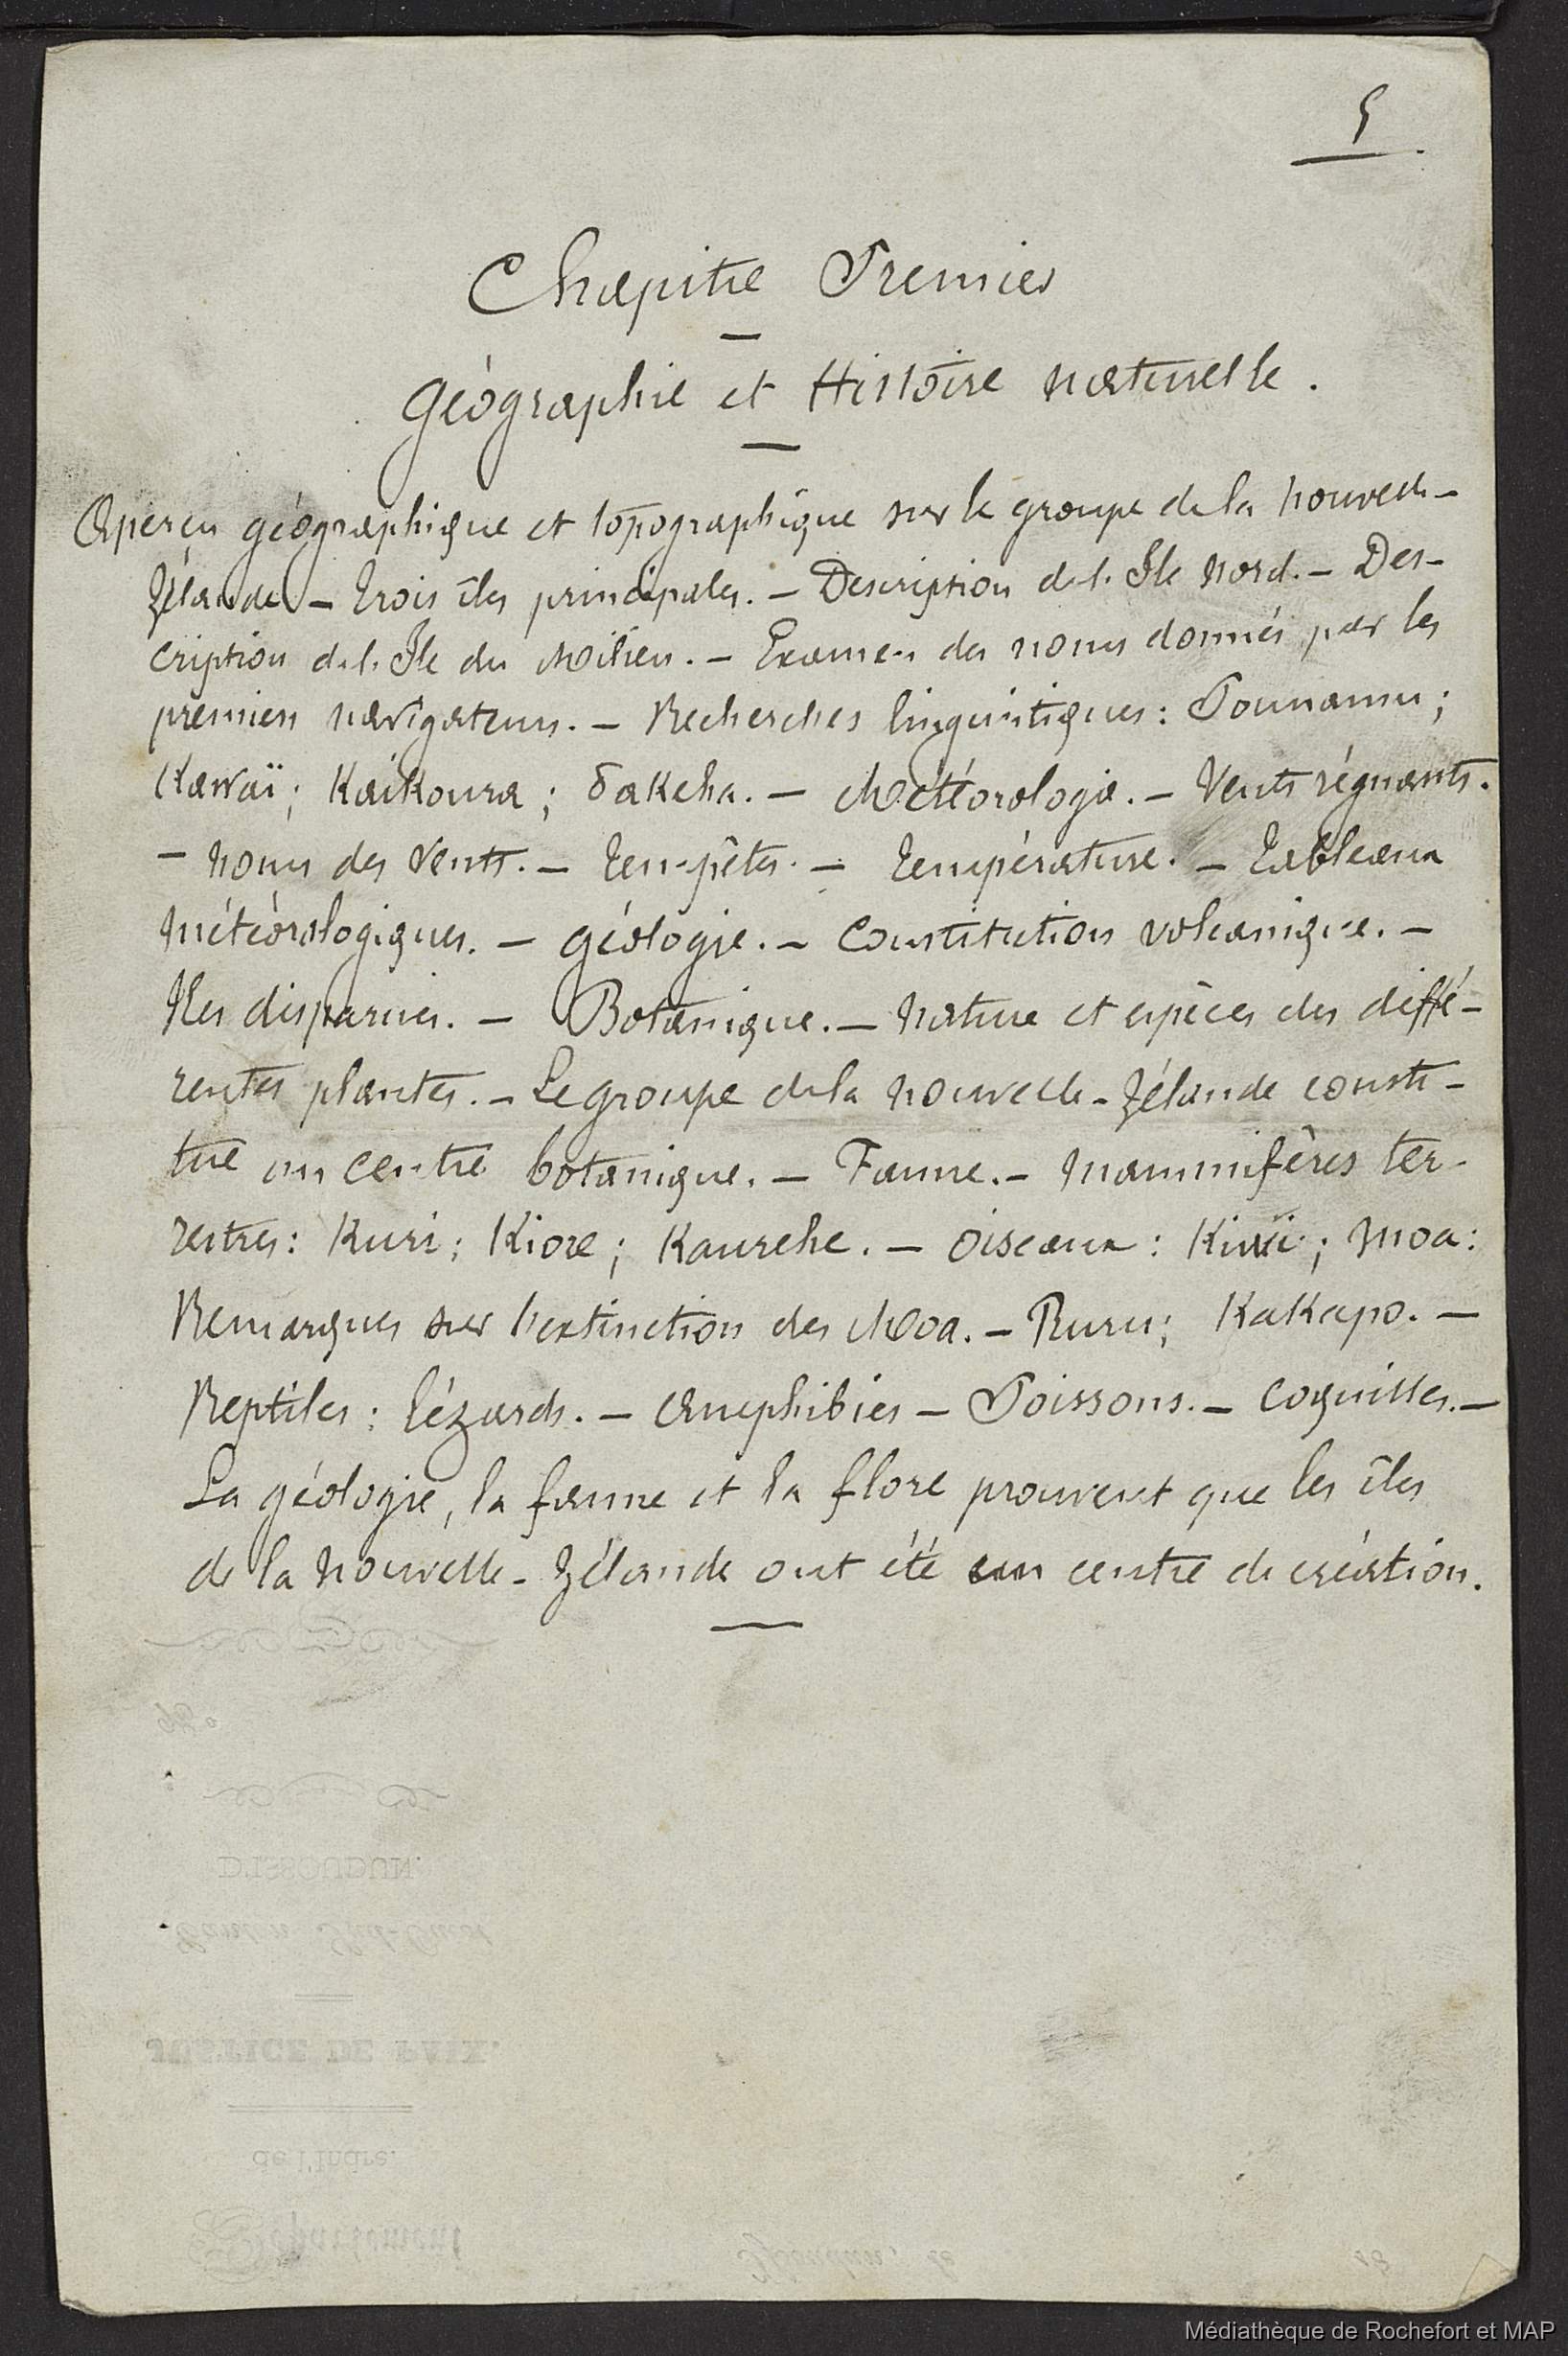 5
Chapitre Premier
Géographie et Histoire naturelle.
Aperçu géographique et topographique sur le groupe de la Nouvelle-
Zélande. – Trois îles principales. – Description de l'Île Nord. – Des-
cription de l'Île du Milieu. – Examen des noms donnés par les
premiers navigateurs. – Recherches linguistiques: Pounamu;
Kawaï; Kaikoura; Pakeha. – Météorologie. – Vents régnants.
– Noms des Vents. – Tempêtes. – Température. – Tableaux
météorologiques. – Géologie. – Constitution volcanique. –
Iles disparues. – Botanique. – Nature et espèces des diffé-
rentes plantes. – Le groupe de la Nouvelle-Zélande consti-
tue un centre botanique. – Faune. – Mammifères ter-
restres: Kuri; Kiore; Kaurehe. – Oiseaux: Kiwi; Moa:
Remarques sur l'extinction des Moa. – Ruru; Kakapo. –
Reptiles: lézards. – Amphibies – Poissons. – Coquilles. –
La géologie, la faune et la flore prouvent que les îles
de la Nouvelle-Zélande ont été un centre de création.
D'ISSOUDUN.
Canton Sud-Ouest
JUSTICE DE PAIX.
de l'Indre.
Département
Issoudun, le
18
Médiathèque de Rochefort et MAP